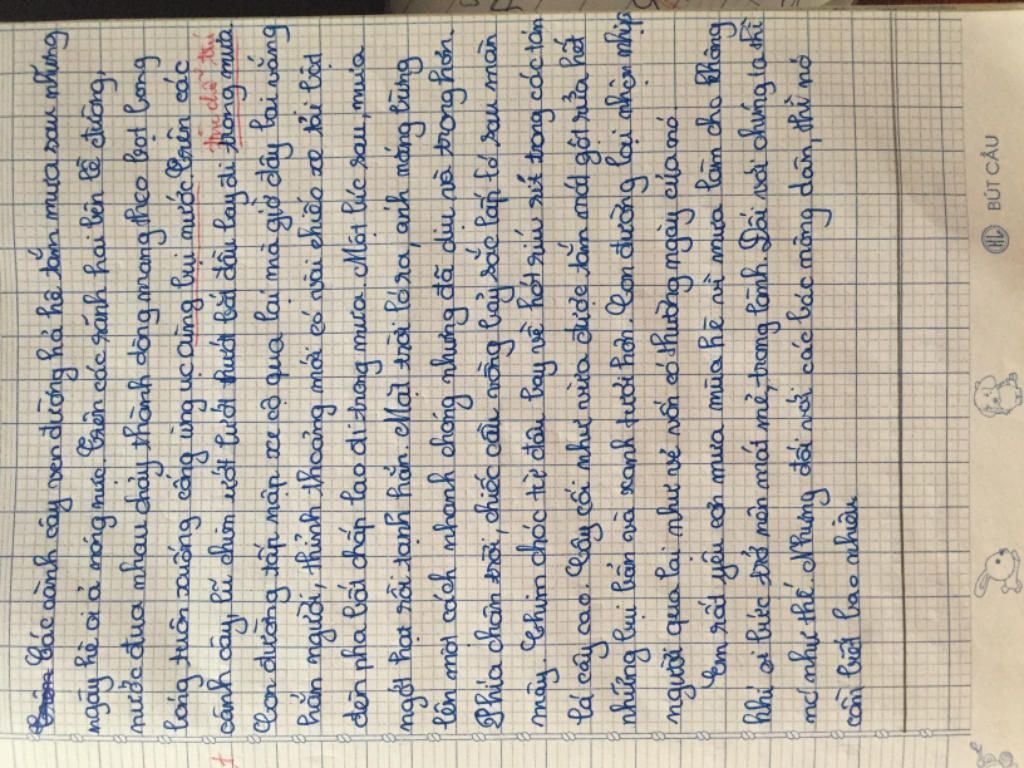 Các cành cây ven đường hả hê tắm mưa sau những
ngày hè oi ả nóng nực. Trên các rãnh hai bên lề đường,
nước đua nhau chảy thành dòng mang theo bọt bong
bóng tuôn xuống cống ùng ục cùng bụi nước. Trên các
cành cây, lũ chim ướt lướt thướt bắt đầu bay đi trong mưa
tìm chỗ trú
Con đường tấp nập xe cộ qua lại mà giờ đây lại vắng
hẳn người, thỉnh thoảng mới có vài chiếc xe tải bật
đèn pha bất chấp lao đi trong mưa. Một lúc sau, mưa
ngớt hạt rồi tạnh hẳn. Mặt trời ló ra, ánh nắng bừng
lên một cách nhanh chóng nhưng đã dịu và trong hơn.
Phía chân trời, chiếc cầu vồng bảy sắc lấp ló sau màn
mây. Chim chóc từ đâu bay về hót ríu rít trong các tán
lá cây cao. Cây cối như vừa được tắm mát gột rửa hết
những bụi bẩn và xanh tươi hơn. Con đường lại nhộn nhịp
người qua lại như vẻ vốn có thường ngày của nó.
Em rất yêu cơn mưa mùa hè vì mưa làm cho không
khí oi bức trở nên mát mẻ, trong lành. Đối với chúng ta thì
nó như thế. Nhưng đối với các bác nông dân, thì nó
còn biết bao nhiêu
BÚT CÂU